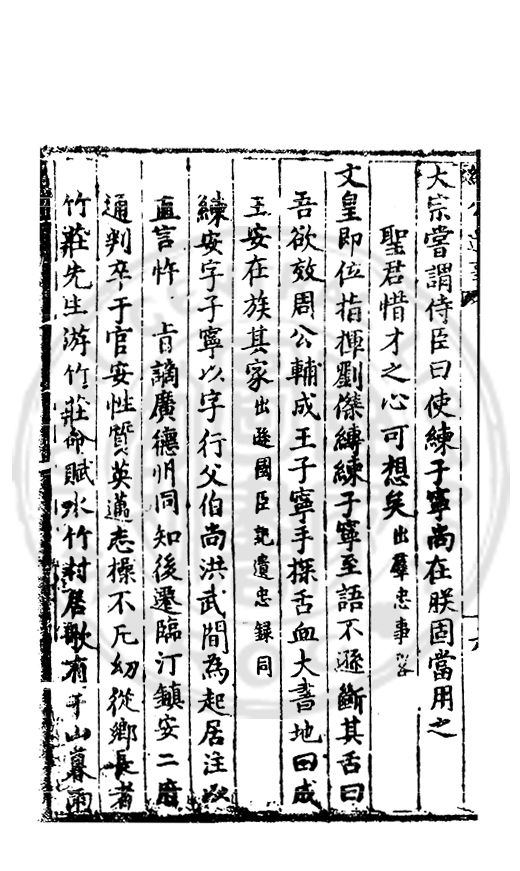 大宗嘗謂侍臣曰使練子寧尚在朕固當用之
聖君惜才之心可想矣出羣忠事畧
文皇即位指揮劉傑縛練子寧至語不遜斷其舌曰
吾欲效周公輔成王子寧手探舌血大書地曰成
王安在族其家出遜國臣記遺忠錄同
練安字子寧以字行父伯尚洪武間為起居注以
直言忤 旨謫廣德州同知後遷臨汀鎮安二府
通判卒于官安性質英邁志操不凡幼從鄉長者
竹莊先生游竹莊命賦水竹村居歌有 山暮雨